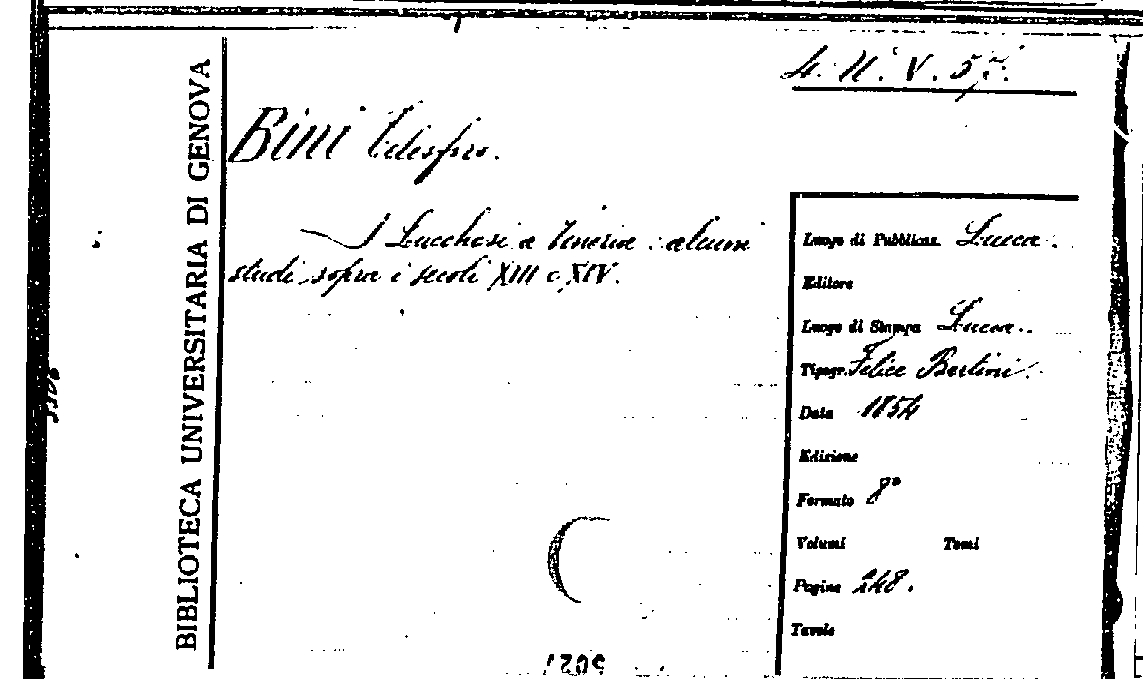 4. U. V. 57.
BIBLIOTECA UNIVERSITARIA DI GENOVA
Bini Telesforo.
I Lucchesi a Venezia : alcuni
studi sopra i secoli XIII e XIV.
Luogo di Pubblicaz. Lucca.
Editore
Luogo di Stampa Lucca.
Tipogr. Felice Bertini.
Data 1854
Edizione
Formato 8°
Volumi Tomi
Pagine 248.
Tavole